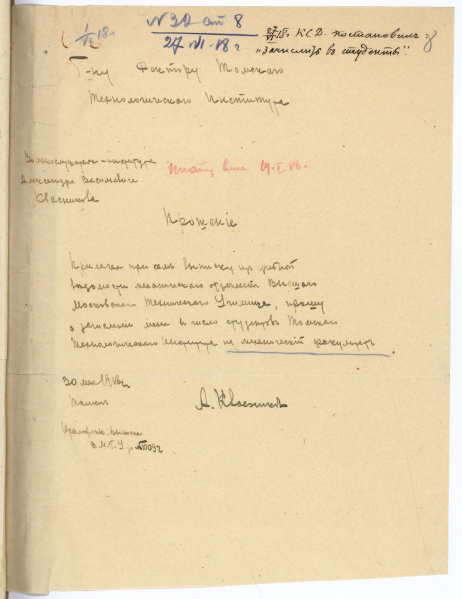 1/VI 18 г.
№ 20 от 8
27 VI. 18 г
27/VI 18 г. КСД. постановил:
"зачислить в студенты".
Г-ну Ректору Томского
Технологического Института
Вольнослушателя института
Александра Васильевича
Квасникова
внес 19. 18 г.
Прошение
Прилагая при сем выписку из учебной
ведомости механического отделения Высшего
Московского Технического Училища, прошу
о зачислении меня в число студентов Томского
Технологического Института на механический факультет.
30 мая 1918 г.
Томск
А. Квасников